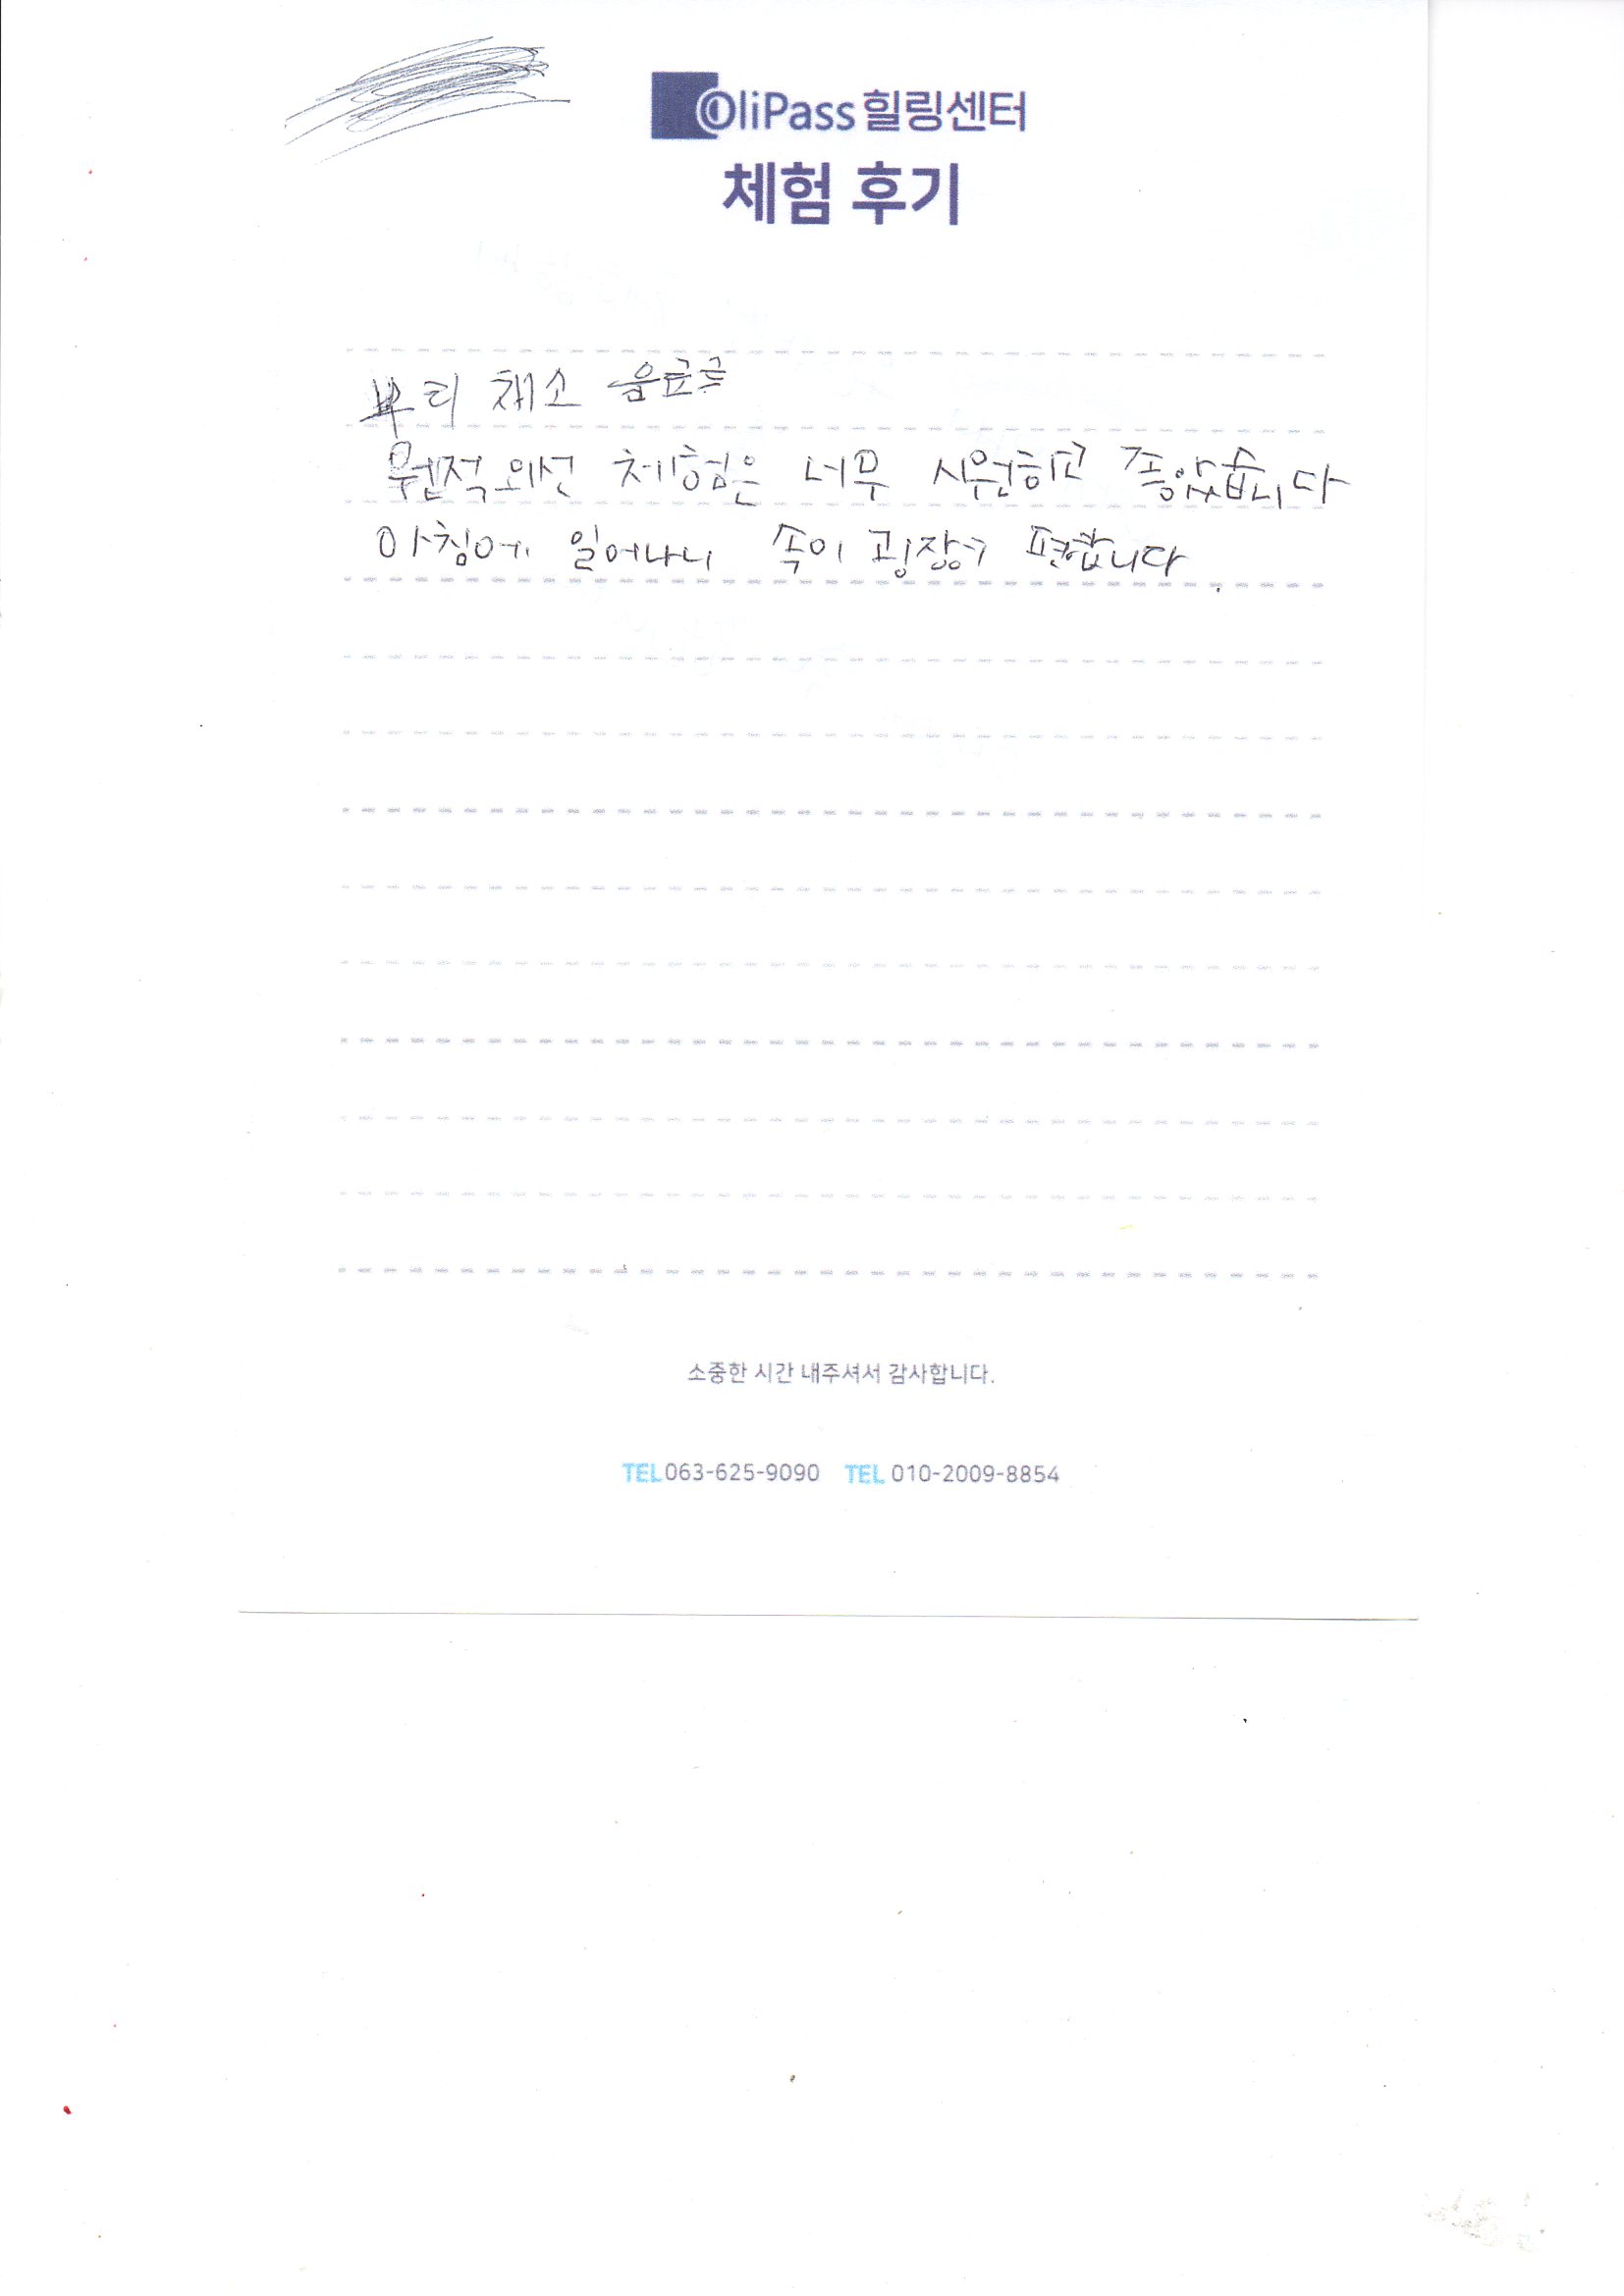 OliPass 힐링센터
체험 후기
뿌리 채소
원적외선 체험은 너무 시원하고 좋았습니다
아침에 일어나니 속이 굉장히 편합니다
소중한 시간 내주셔서 감사합니다.
TEL 063-625-9090 TEL 010-2009-8854